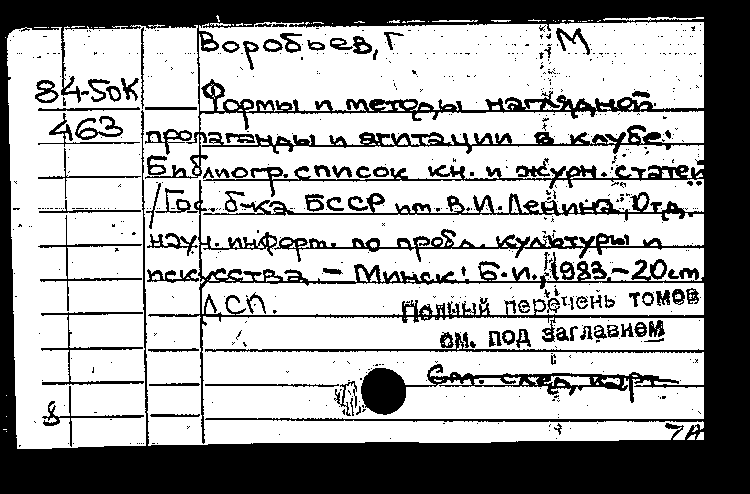 Воробьев, Г М
84-50К
Формы и методы наглядной
463
пропаганды и агитации в клубе:
Библиогр. список кн. и журн. статей
/Гос. б-ка БССР им. В.И.Ленина; Отд.
науч. информ. по пробл. культуры и
искусства. – Минск: Б.и., 1983.– 20 ст.
ДСП.
Полный перечень томов
см. под заглавием
См. след. карт.
8
7А